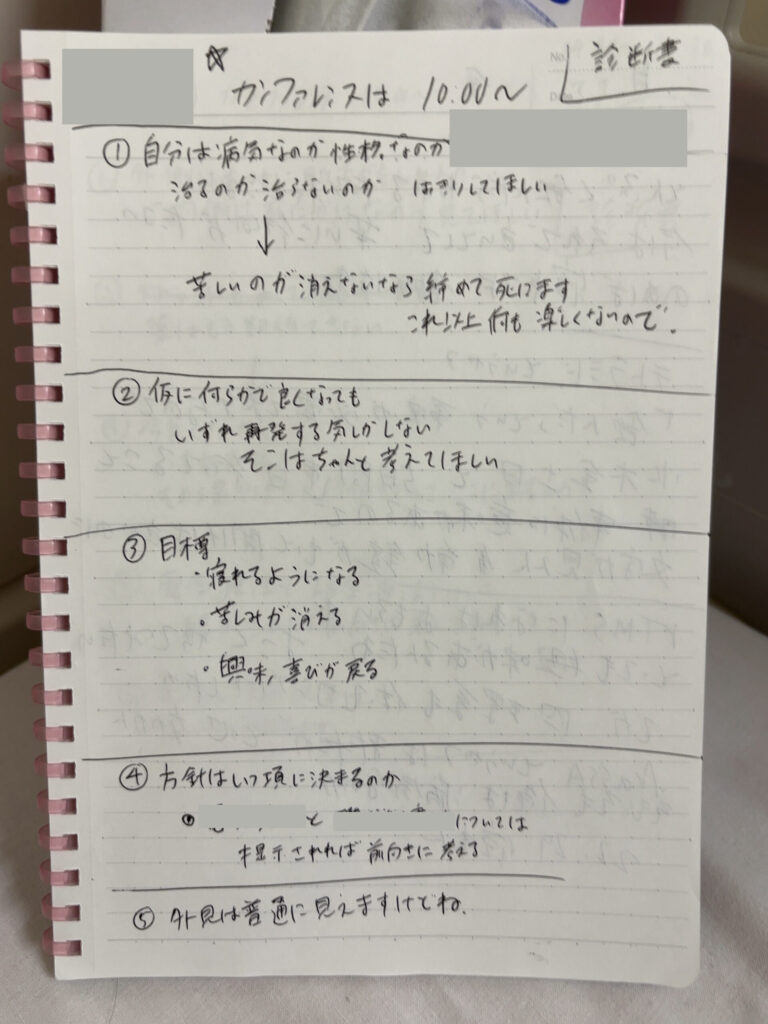 診断書
☆
カンファレンスは 10:00〜
① 自分は病気なのか性格なのか
治るのか治らないのか はっきりしてほしい
↓
苦しいのが消えないなら諦めて死にます
これ以上何も楽しくないので。
② 仮に何らかで良くなっても
いずれ再発する気しかしない
そこはちゃんと考えてほしい
③ 目標
・寝れるようになる
・苦しみが消える
・興味,喜びが戻る
④ 方針はいつ頃に決まるのか
と については
提示されれば前向きに考える
⑤ 外見は普通に見えますけどね.